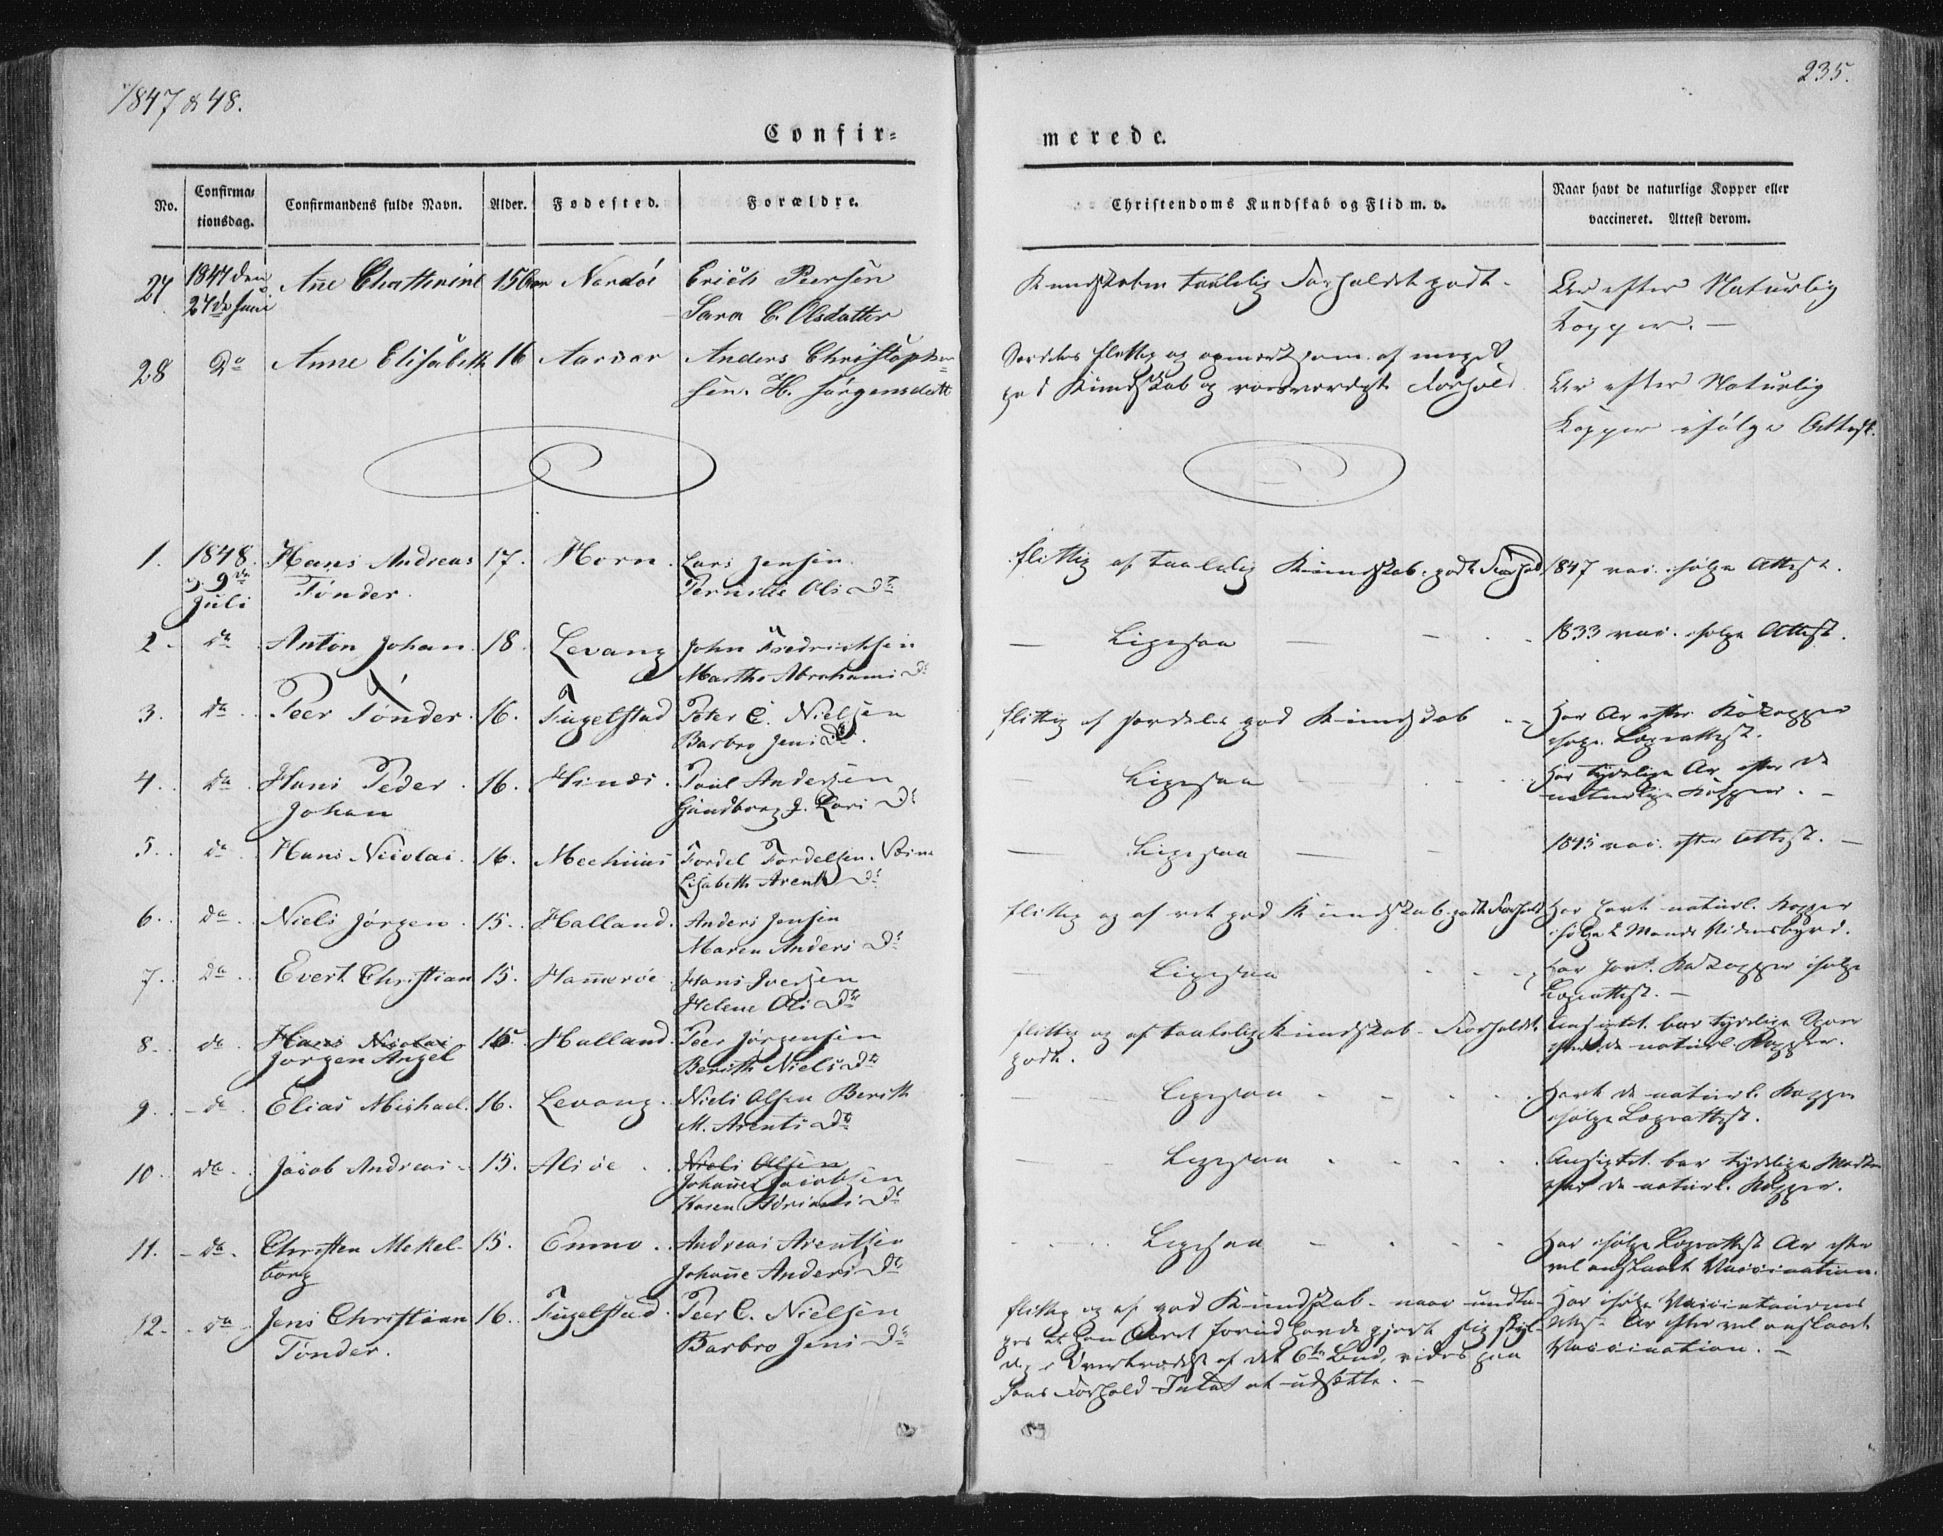 1847 & 48.
235.
Confir=
merede.
No.
Confirma=
tionsdag.
Confirmandens fulde Navn.
Alder.
Fødested.
Forældre.
Christendoms Kundskab og Flid m. v.
Naar havt de naturlige Kopper eller
vaccineret. Attest derom.
27 1847 den Anne Chatherine 15 Nordøe Erich Peersen
24de Juni Sara C. Olsdatter
Kundskaben taalelig Forholdet godt.
Ar efter Naturlig
Kopper. —
28 Do Anne Elisabeth 16 Aarvær Anders Christophers
sen. H. Jørgensdatt
Særdeles flittig og opmærksom. af meget
god Kundskab og roesværdigt Forhold
Ar efter Naturlig
Kopper ifølge Attest.
1. 1848 Hans Andreas 17. Horn. Lars Jensen
d. 9de Tønder. Pernille Ols Dtr
Juli
flittig af taalelig Kundskab. godt Forhold
1847 vac. ifølge Attest.
2. do Anton Johan 18. Levang John Fredrichsen
Martha Abrahams Dr
— Ligesaa — — 1833 vac. ifølge Attest.
3. do Peer Tønder. 16. Tingelstad Peter C. Nielsen
Barbro Jens Dr.
flittig af særdeles god Kundskab
Har Ar efter Kokopper
ifølge Lægeattest.
4. do Hans Peder 16. Hinds. Paul Andersen
Johan Gundborg J. Lars Dr
— Ligesaa
Har tydelige Ar efter de
naturlige Kopper. —
5. do Hans Nicolai. 16. Tordel Tordelsen.
Lisabeth Arents Dr
— Ligesaa — — 1845 vac. efter Attest. —
6. do Niels Jørgen. 15. Halland. Anders Jensen
Maren Anders Dr
flittig og af ret god Kundskab. godt Forhold
Har havt naturl. Kopper
ifølge 2 Mænds Vidnesbyrd.
7. do Evert Christian 15. Hammerøe Hans Iversen
Helene Ols Dr
Ligesaa
Har havt Kokopper ifølge
Lægeattest. —
8. do Hans Nicolai 15. Halland. Peer Jørgensen
Jørgen Angel Berith Niels Dr
flittig og af taalelig Kundskab. Forholdet
godt.
Ansigtet bar tydelige Spor
efter de naturl. Kopper.
9. do Elias Michael. 16. Levang. Niels Olsen Berith
M. Arents Dr
Ligesaa
Havt de naturl. Kopper
ifølge Lægeattest.
10. do Jacob Andreas 15. Alsøe. Niels Olsen
Johannes Jacobsen
Karen Adrians Dr
Ligesaa
Ansigtet bar tydelige Mærker
efter de naturl. Kopper.
11. do Christen Mekel- 15. Enmo. Andreas Arentsen
borg Johanne Anders Dr
Ligesaa
Har ifølge Lægeattest Ar efter
vel anslaaet Vaccination.
12. do Jens Christian 16. Tingelstad. Peer C. Nielsen
Tønder. Barbro Jens Dr
flittig og af god Kundskab. naar undta-
ges at han Aaret forud havde gjort sig skyl-
dig i Overtrædelse af det 6te Bud, vides paa
hans Forhold Intet at udsætte. —
Har ifølge Vaccinateurens
Attest Ar efter vel anslaaet
Vaccination. —